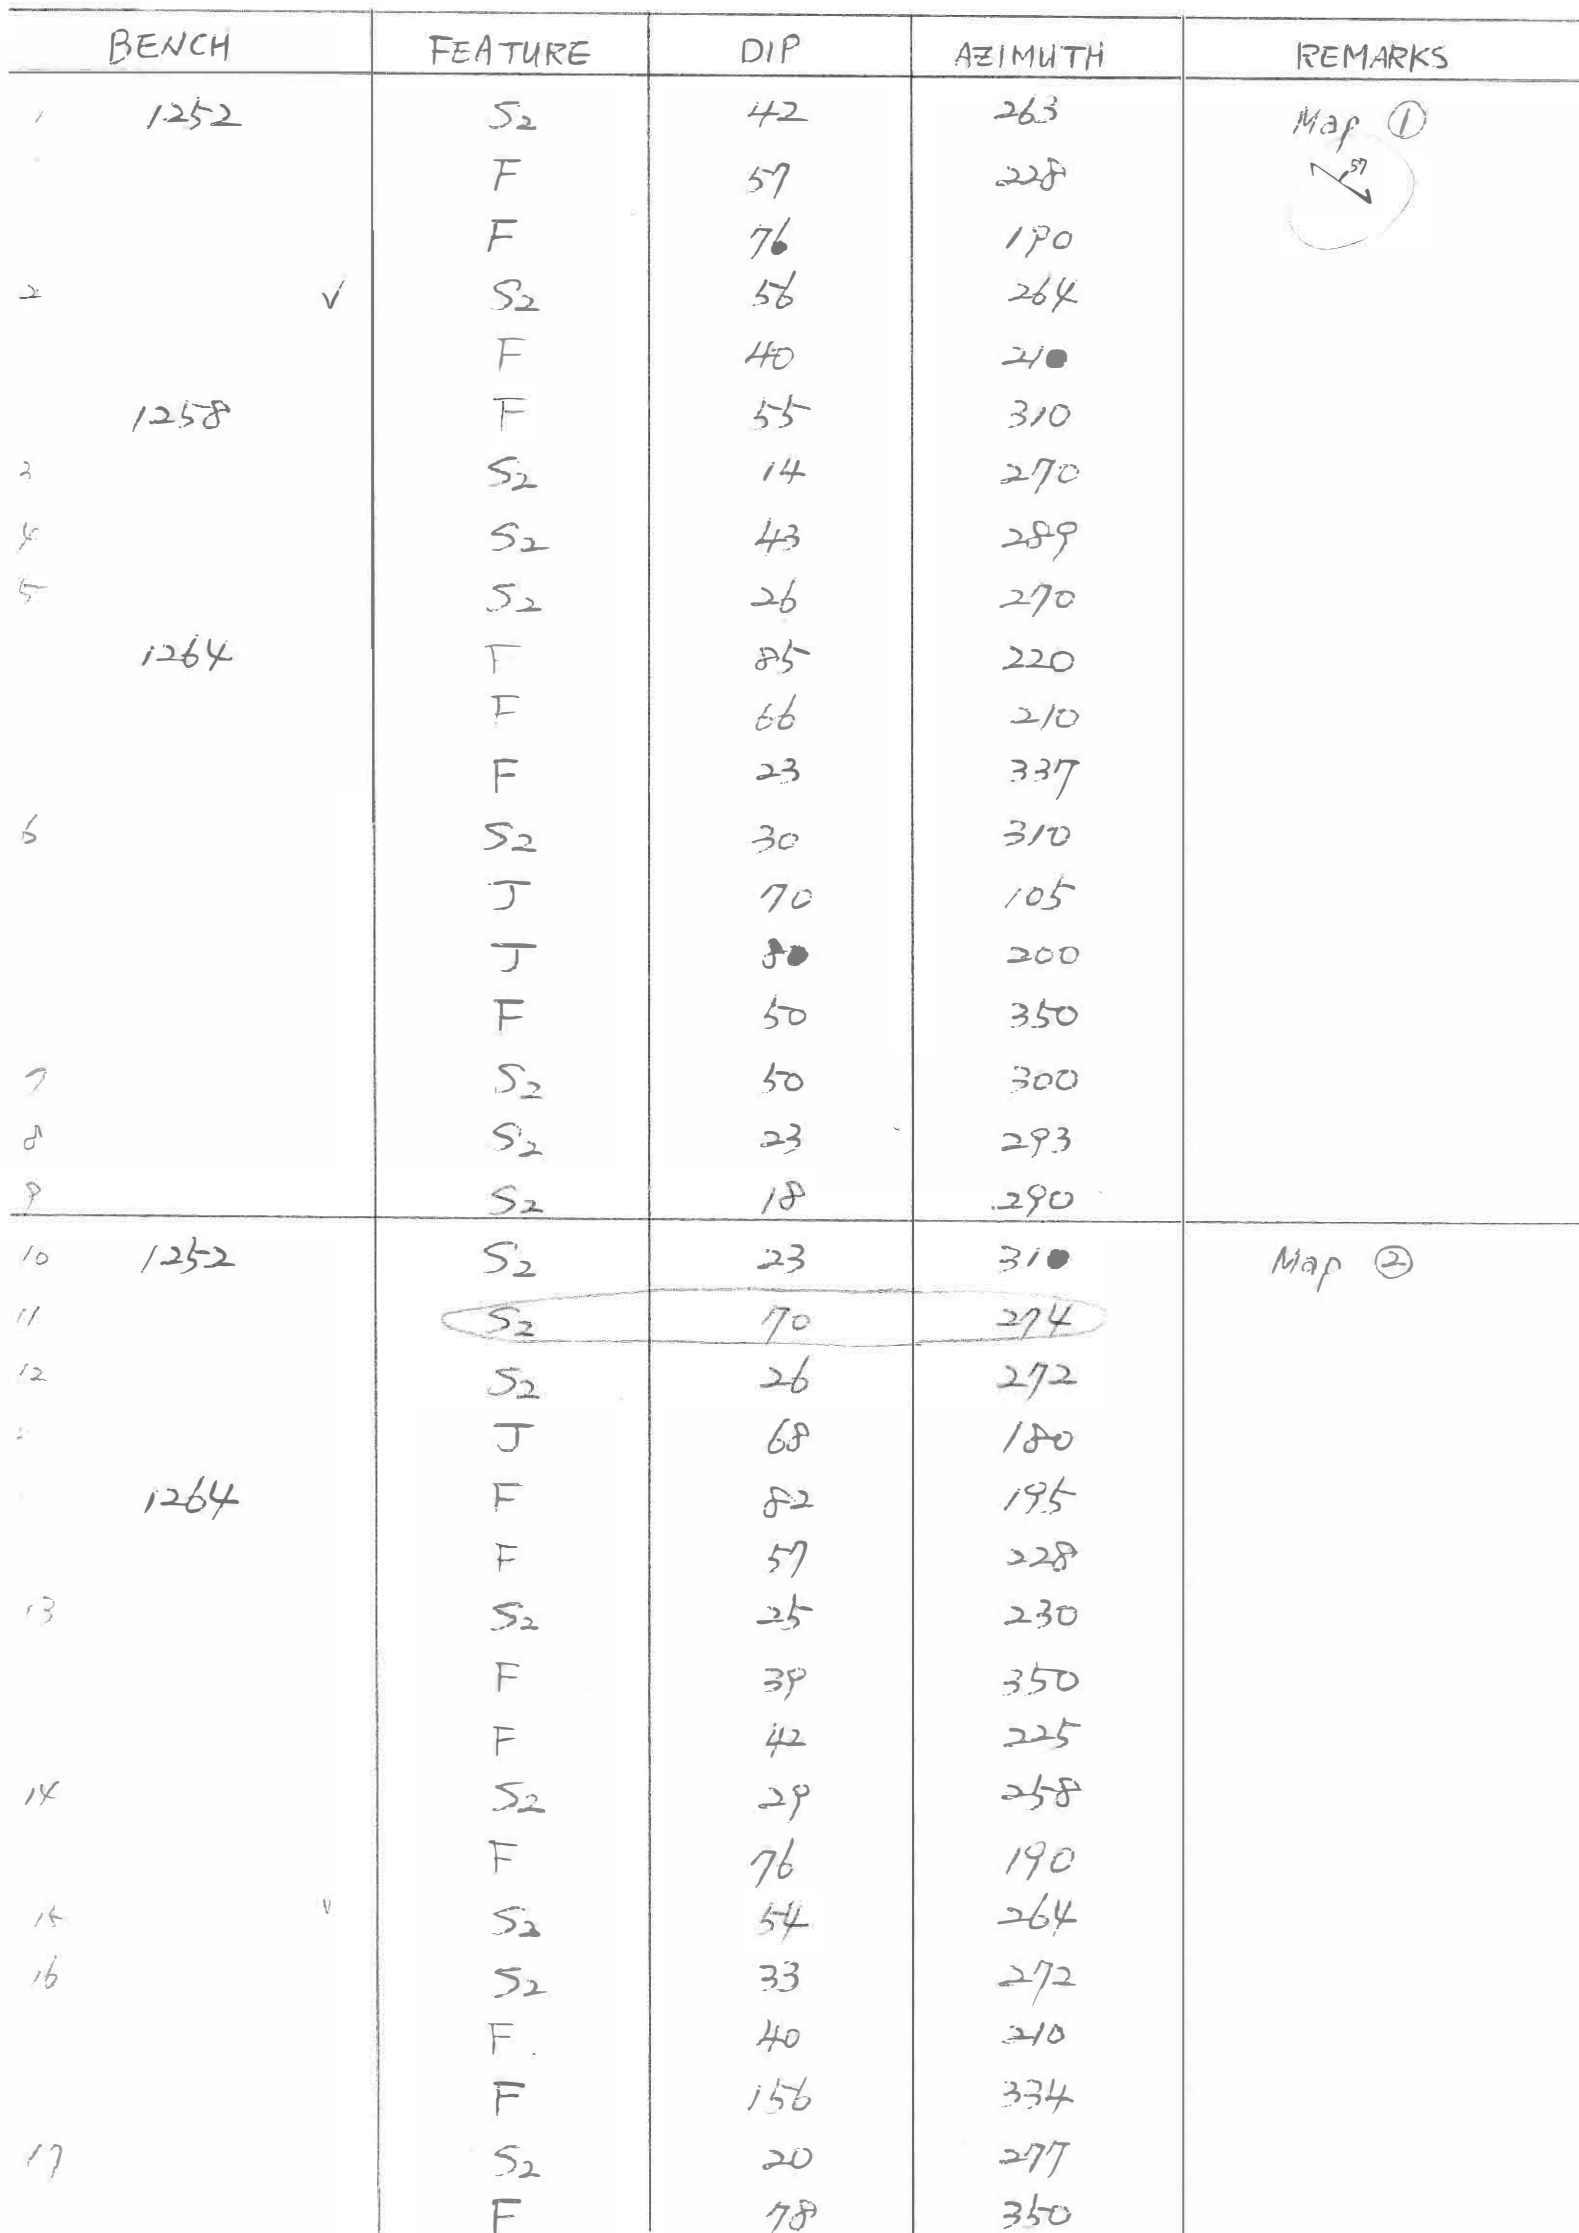 BENCH FEATURE DIP AZIMUTH REMARKS
1 1252 S2 42 263 Map ①
F 57 228 57
F 76 190
2 √ S2 56 264
F 40 21
1258 F 55 310
3 S2 14 270
4 S2 43 289
5 S2 26 270
1264 F 85 220
F 66 210
F 23 337
6 S2 30 310
J 70 105
J 8 200
F 50 350
7 S2 50 300
8 S2 23 293
9 S2 18 290
10 1252 S2 23 31 Map ②
11 S2 70 274
12 S2 26 272
J 68 180
1264 F 82 195
F 57 228
13 S2 25 230
F 39 350
F 42 225
14 S2 29 258
F 76 190
15 S2 54 264
16 S2 33 272
F 40 210
F 156 334
17 S2 20 277
F 78 350